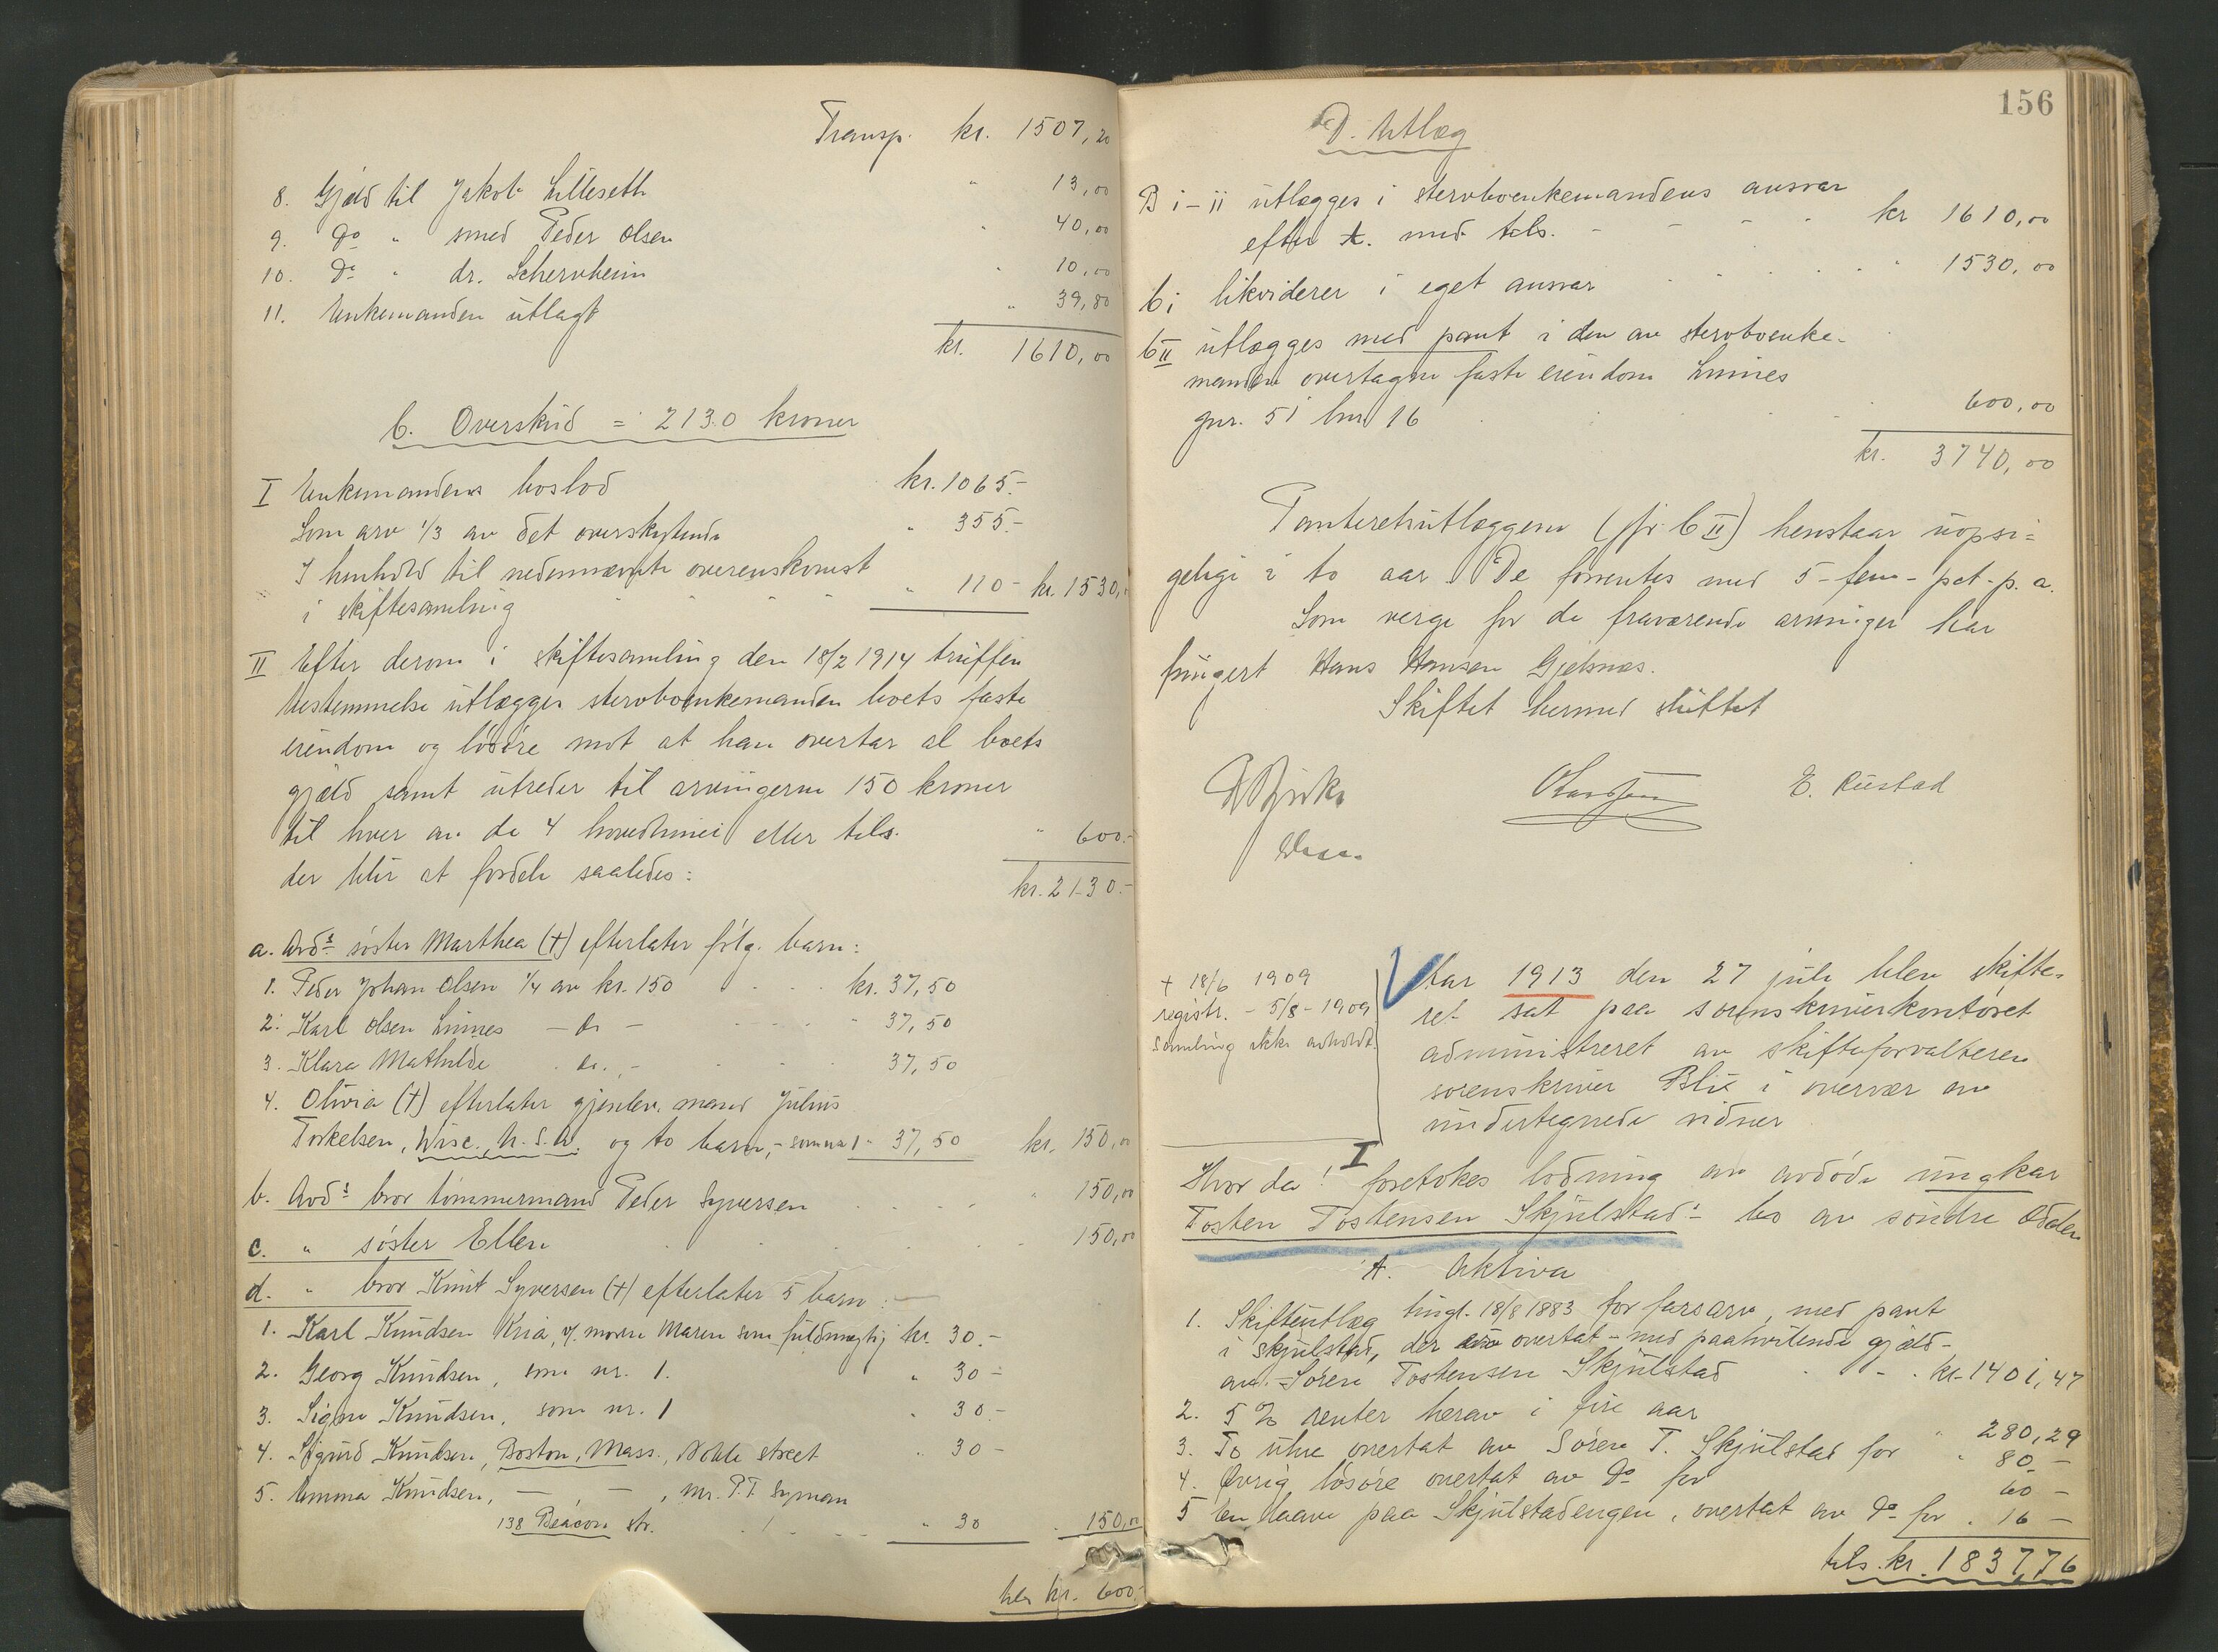 Transp. kr. 1507,20
8. Gjæld til Jakob Lilleseth " 13,00
9. Do " smed Peder Olsen " 40,00
10. Do " dr. Schervheim " 10,00
11. Enkemanden utlagt " 39,80
kr. 1610,00
C. Overskud = 2130 kroner
I Enkemandens boslod kr. 1065.-
Som arv 1/3 av det overskytende " 355.-
I henhold til nedennævnte overenskomst
i skiftesamling " 110 - kr. 1530,-
II Efter derom i skiftesamling den 18/2 1914 truffen
bestemmelse utlægges stervboenkemanden boets faste
eiendom og løsøre mot at han overtar al boets
gjæld samt utreder til arvingerne 150 kroner
til hver av de 4 hovedlinier eller tils. " 600.-
der blir at fordele saaledes: kr. 2130.-
a. Avds søster Marthea (+) efterlater følg. barn:
1. Peder Johan Olsen 1/4 av kr. 150 kr. 37,50
2. Karl Olsen Linnes - do - 37,50
3. Klara Mathilde do. - 37,50
4. Olivia (+) efterlater gjenlev. mand Julius
Torkelsen, Wisc. U.S.A. og to barn, - 37,50 kr. 150,00
b. Avds bror tømmermand Peder Syversen " 150,00
c. " søster Ellen 150,00
d. " bror Knut Syversen (+) efterlater 5 barn:
1. Karl Knudsen Kria, v/ moren Maren som fuldmægtig kr. 30.-
2. Georg Knudsen, som nr. 1. " 30 -
3. Signe Knudsen, som nr. 1 " 30.-
4. Sigurd Knudsen, Boston, Mass., Noble street " 30 -
5. Emma Knudsen, - , - , mr. P.T. Syman
138 Beacon str. " 30 150,00
tils kr. 600.-
156
D. Utlæg
B 1-11 utlægges i stervboenkemandens ansvar
efter A. med tils. - - - kr 1610,00
C I likviderer i eget ansvar " 1530,00
C II utlægges med pant i den av stervboenke-
manden overtagne faste eiendom Linnes
gnr. 51 bnr 16 600,00
kr. 3740,00
Panteretsutlæggene (jfr. C II) henstaar uopsi=
gelige i to aar. De forrentes med 5 - fem - pct. p. a.
Som verge for de fraværende arvinger har
fungert Hans Hansen Gjelsnæs.
Skiftet hermed sluttet
E. Rustad
+ 18/6 1909
registr. - 5/8 - 1909
Samling ikke avholdt.
Aar 1913 den 27 juli blev skifte-
ret sat paa sorenskriverkontoret
administreret av skifteforvalteren
sorenskriver Blix i overvær av
undertegnede vidner
Hvor da! I foretokes lodning av avdøde ungkar
Tosten Tostensen Skjulstads bo av søndre Odalen
A. Aktiva
1. Skifteutlæg tingl. 18/8 1883 for farsarv, med pant
i Skjulstad, der er overtat - med paahvilende gjæld -
av Søren Tostensen Skjulstad kr. 1401,47
2. 5 % renter herav i fire aar " 280,29
3. To uhre overtat av Søren T. Skjulstad for " 80 -
4. Øvrig løsøre overtat av Do for 60 -
5 En laave paa Skjulstadengen, overtat av Do for " 16 -
tils. kr. 1837,76